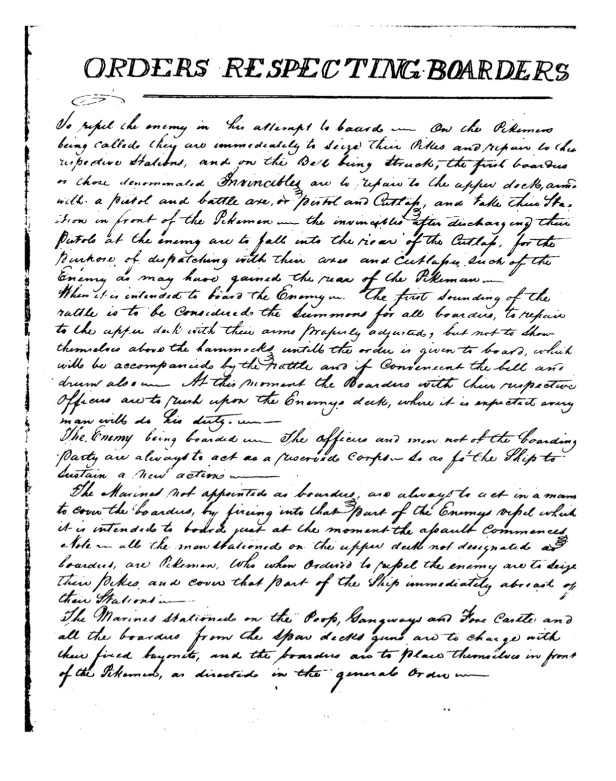 ORDERS RESPECTING BOARDERS
To repel the enemy in his attempt to board — On the Pikemen
being called they are immediately to seize their Pikes and repair to their
respective Stations, and on the Bell being Struck, the first boarders
or those denominated Invincibles are to repair to the upper deck, armd
with a pistol and battle axe, or pistol and Cutlass, and take their Sta-
tion in front of the Pikemen — the invincibles after discharging their
Pistols at the enemy are to fall into the rear of the Cutlass, for the
Purpose of dispatching with their axes and Cutlasses, such of the
Enemy as may have gained the rear of the Pikeman —
When it is intended to board the Enemy — The first sounding of the
rattle is to be Considered the Summons for all boarders, to repair
to the upper deck with their arms properly adjusted, but not to show
themselves above the hammocks untill the order is given to board, which
will be accompanied by the rattle and if Convenient the bell and
drum also — At this moment the Boarders with their respective
Officers are to rush upon the Enemys deck, where it is expected every
man will do his duty. —
The Enemy being boarded — The officers and men not of the boarding
Party are always to act as a reserved Corps — So as for the Ship to
Sustain a new action —
The Marines not appointed as boarders, are always to act in a mann
to cover the boarders, by fireing into that part of the Enemys vessel which
it is intended to board just at the moment the assault Commences
Note — all the men stationed on the upper deck not designated as
boarders, are Pikemen, Who when Ordered to repel the enemy are to seize
their Pikes, and cover that part of the Ship immediately abreast of
their Stations —
The Marines stationed on the Poop, Gangways and Fore Castle and
all the boarders from the Spar decks guns are to charge with
their fixed bayonets, and the boarders are to place themselves in front
of the Pikemen, as directed in the general Order —